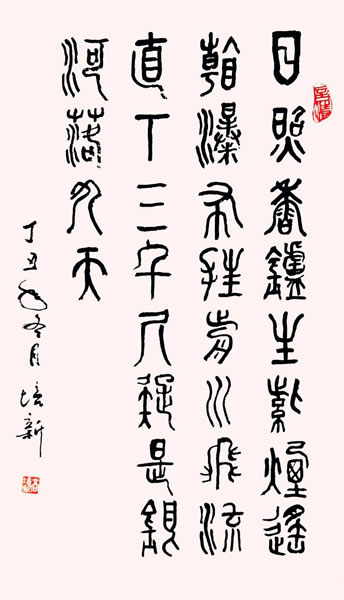 日照香鑪生紫煙遙
看瀑布挂前川飛流
直下三千尺疑是銀
河落九天
丁丑年冬月培新